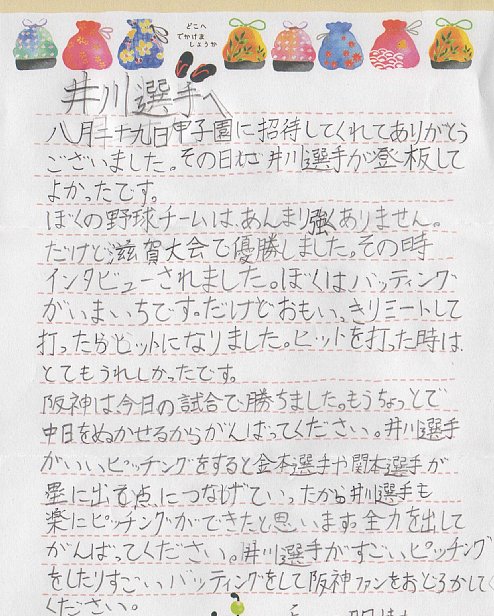 どこへ
でかけま
しょうか
井川選手へ
八月二十九日甲子園に招待してくれてありがとう
ございました。その日に井川選手が登板して
よかったです。
ぼくの野球チームは、あんまり強くありません。
だけど滋賀大会で優勝しました。その時
インタビューされました。ぼくはバッティング
がいまいちです。だけどおもいっきりミートして
打ったらヒットになりました。ヒットを打った時は、
とてもうれしかったです。
阪神は、今日の試合で勝ちました。もうちょっとで
中日をぬかせるからがんばってください。井川選手
がいいピッチングをすると金本選手や関本選手が
塁に出て点につなげていったから井川選手も
楽にピッチングができたと思います。全力を出して
がんばってください。井川選手がすごいピッチング
をしたりすごいバッティングをして阪神ファンをおどろかしてく
ください。